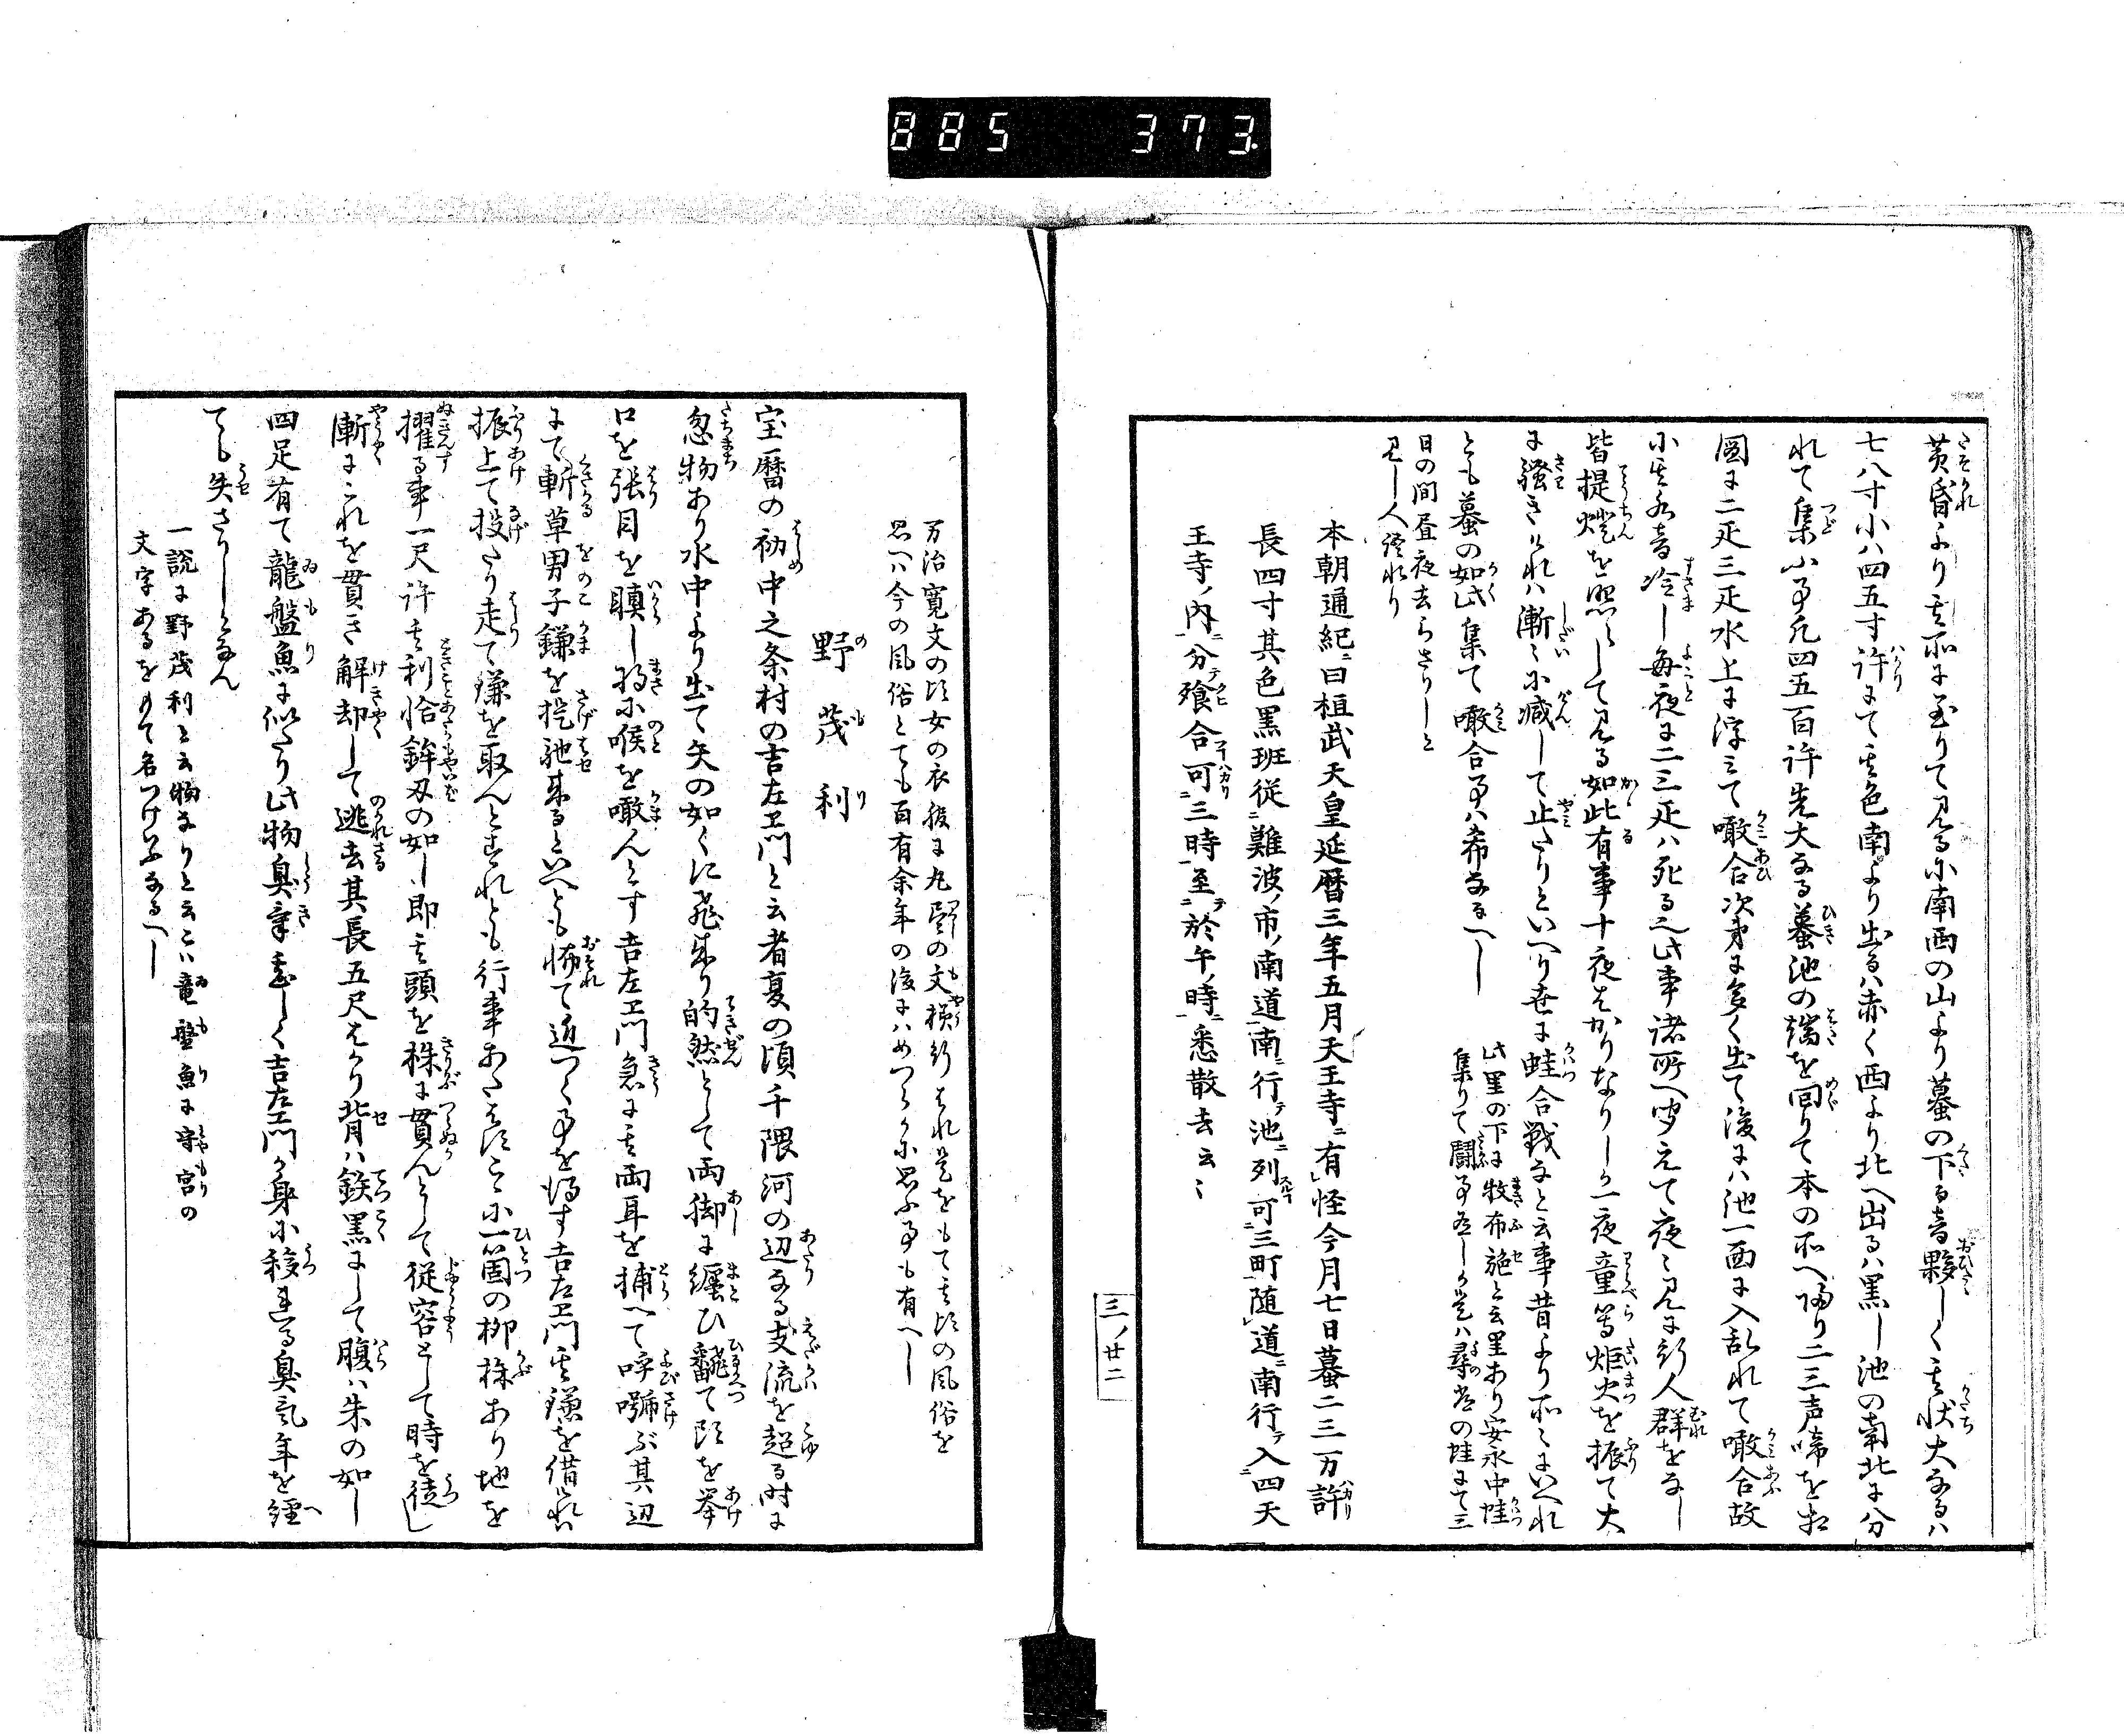 885 373.
黄昏より其所に至りて見るに南西の山より蟇の下る音夥しく其状大なるハ
七八寸小ハ四五寸許にて其色南より出るハ赤く西より北へ出るハ黒し池の南北に分
れて集ふ事凡四五百許先大なる蟇池の端を回りて本の所へ帰り二三声啼を
圖に二疋三疋水上に浮ミて噉合次第に多く出て後にハ池一面に入乱れて噉合故
小其音冷し毎夜に二三疋ハ死る也此事諸所へ聞えて夜ミ見に行人群をなし
皆提燈を照して見る如此有事十夜はかりなりしか一夜童等炬火を振て大
に騒きけれハ漸ミに減して止たりといへり世に蛙合戦なと云事昔より所ミにいへれ
とも蟇の如此集て噉合事ハ希なるへし
此里の下に牧布施と云里あり安永中蛙
集りて闘事有しか是ハ尋常の蛙にて三
日の間昼夜去らさりしと
見し人語れり
本朝通紀ニ曰桓武天皇延暦三年五月天王寺ニ有怪今月七日蟇二三万許
長四寸其色黒班従難波ノ市ノ南道南ニ行テ池ニ列可三町随道ニ南行テ入四天
王寺ノ内ニ分テ飱合可三時至テ於午時ニ悉散去云ミ
三ノ廿二
万治寛文の頃女の衣服に丸尽の文様行はれ是をもて其頃の風俗を
思へハ今の風俗とても百有余年の後にハめつらかに思ふ事も有へし
野茂利
宝暦の初中之条村の吉左エ門と云者夏の頃千隈河の辺なる支流を超る時に
忽物あり水中より出て矢の如くに飛来り的然として両脚に纏ひ飜て頭を挙
口を張目を瞋し将に喉を噉んとす吉左エ門急に其両耳を捕へて呼號ぶ其辺
にて斬草男子鎌を提馳来るといへとも怖て近つく事を得す吉左エ門其鎌を借れハ
振上て投たり走て鎌を取んとすれとも行事あたはすこゝに一箇の柳株あり地を
擢る事一尺許其利恰鉾刃の如し即其頭を株に貫んとして従容として時を徒し
漸にこれを貫き解却して逃去其長五尺はかり背ハ鉄黒にして腹ハ朱の如し
四足有て龍盤魚に似たり此物臭気甚しく吉左エ門か身に移れる臭気年を經
ても失さりしとなん
一説に野茂利と云物なりと云こハ竜盤魚に守宮の
文字あるをもて名つけいふなるへし